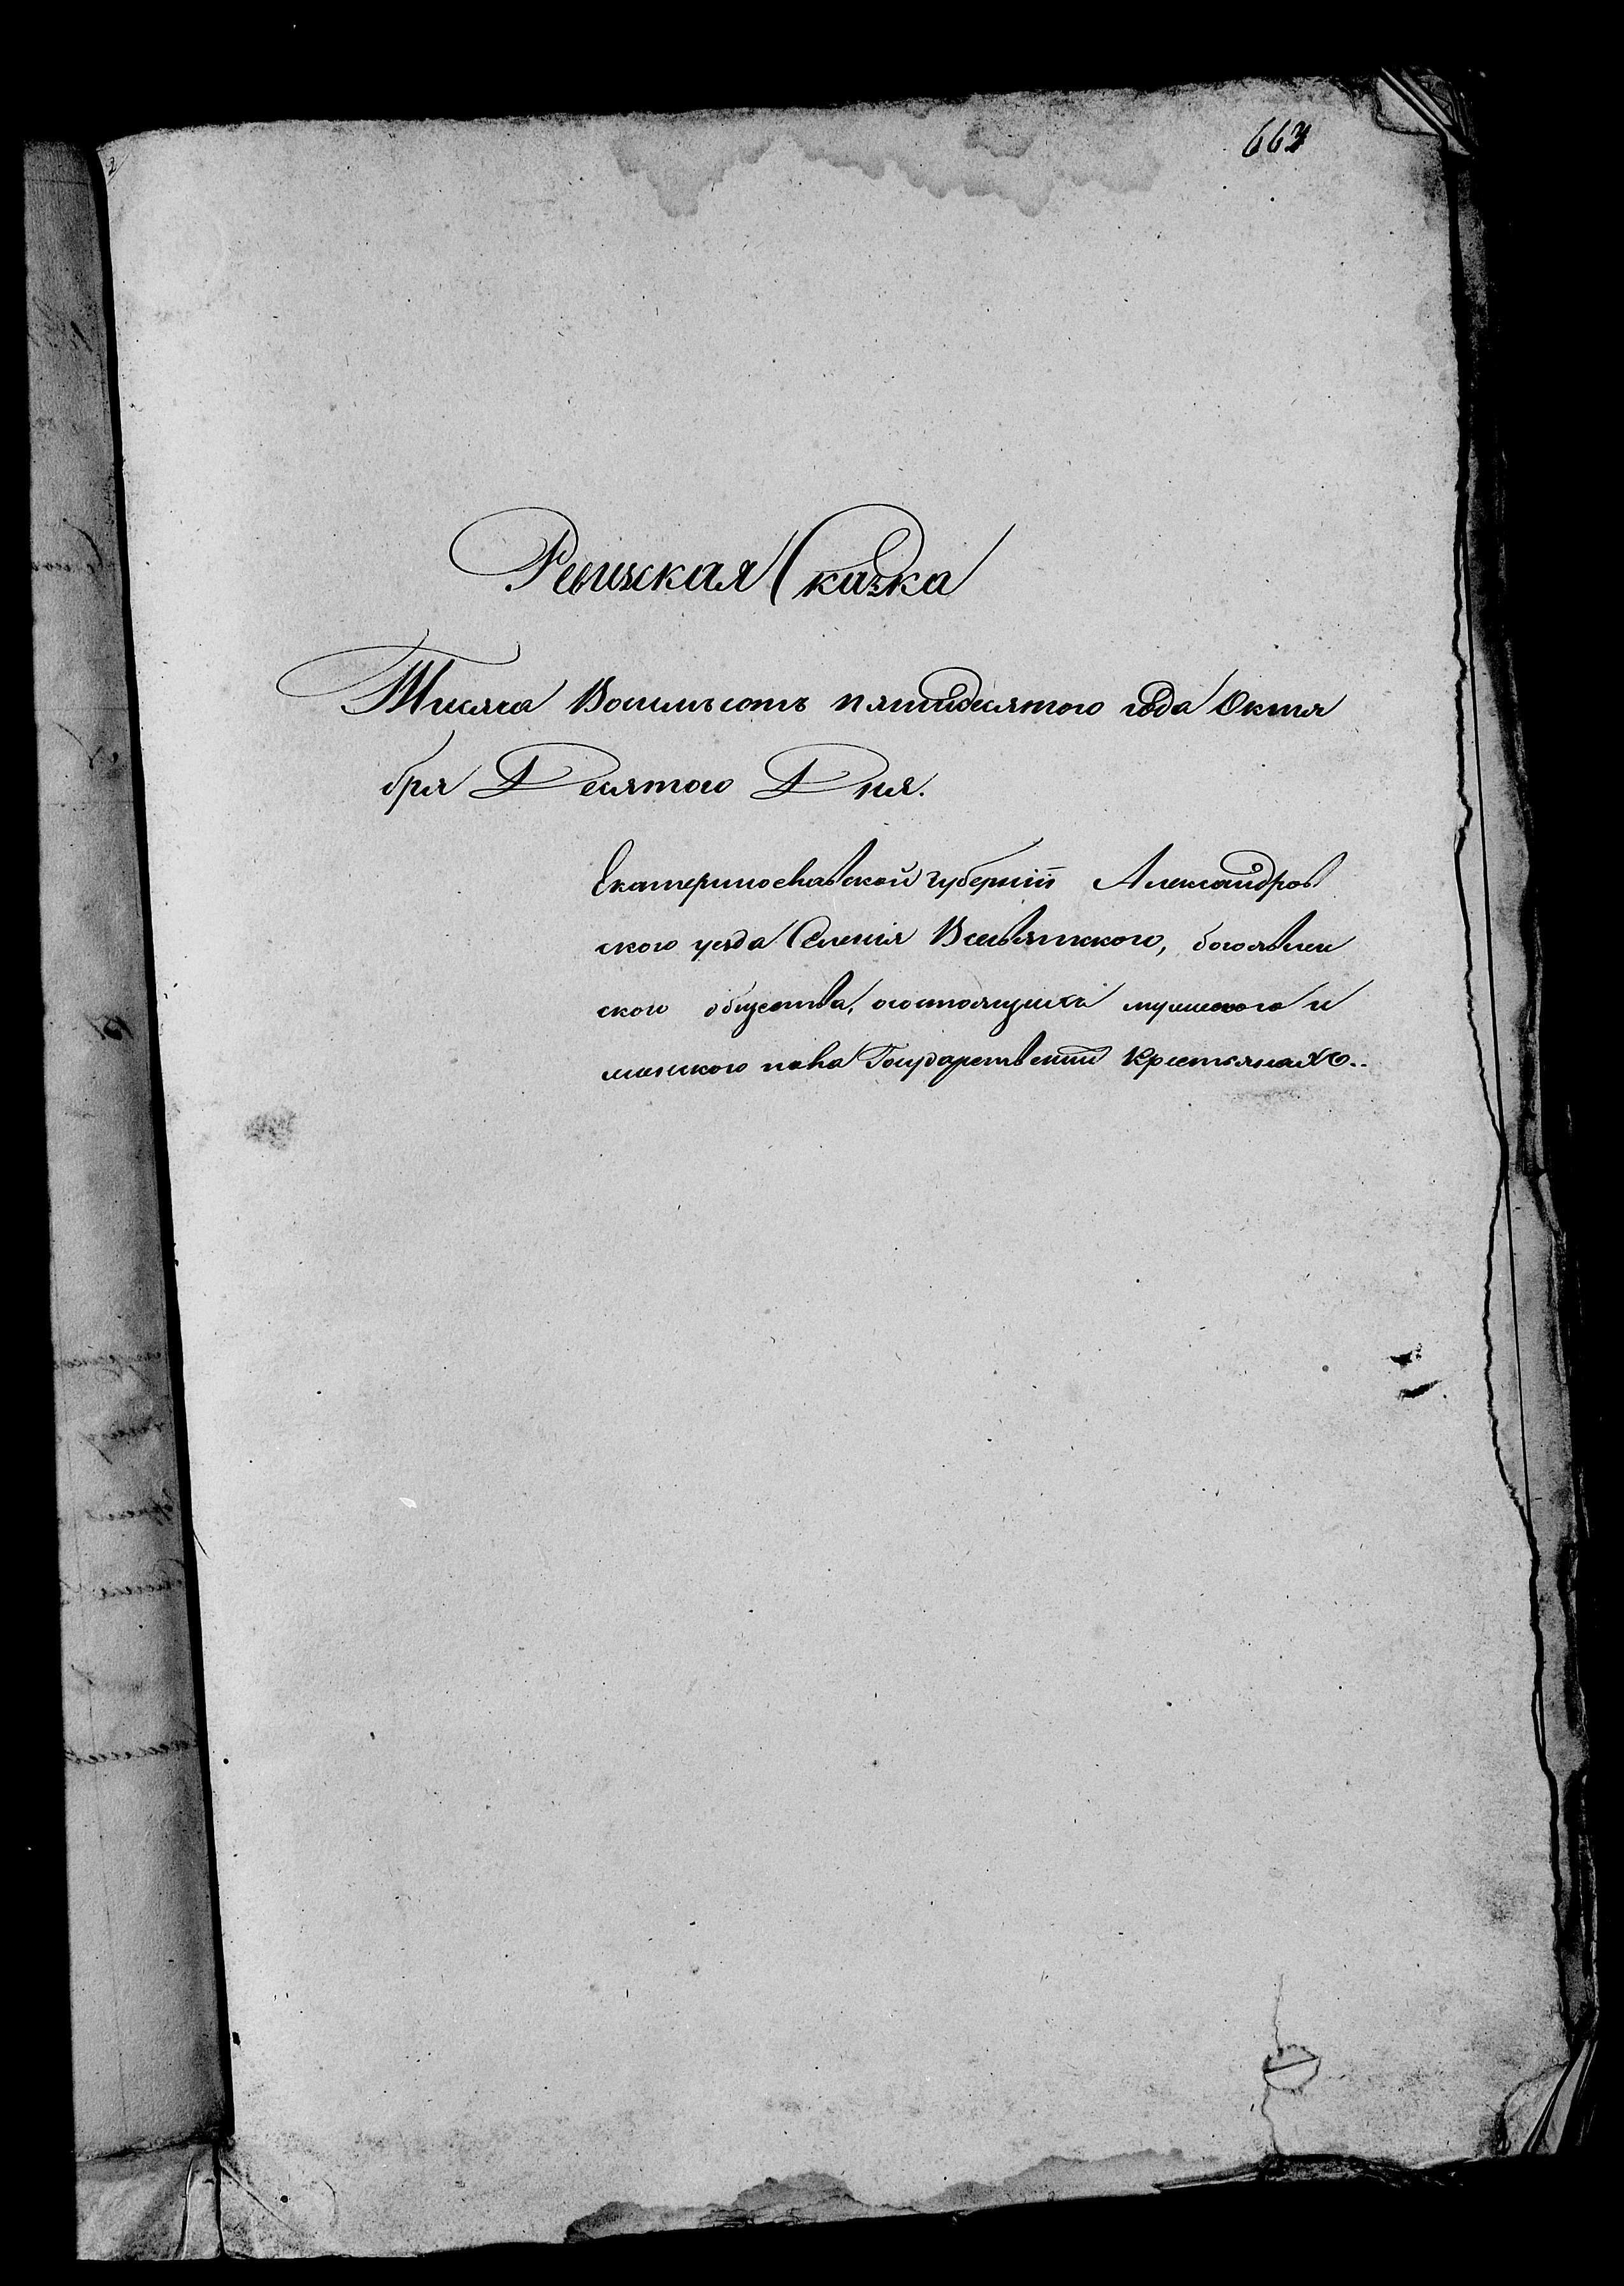 Ревизская Сказка
Тисяча Восимьсотъ пятидесятого года Октя
бря Десятого Дня.
Екатеринославской губерніи Александров
ского уезда Селенія Всесвятского, богоявлен
ского общества, состоящихъ мужеского и
женского пола Государственни Крестьянахъ..